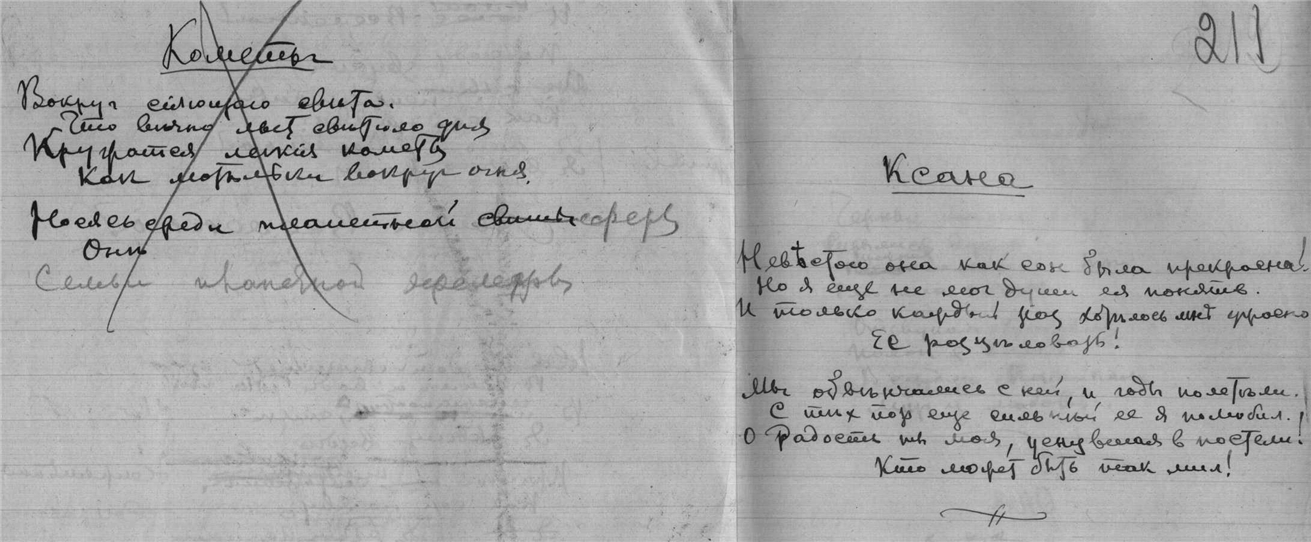 Кометы
Вокругъ сіяющаго свѣта.
Что вѣчно льетъ свѣтило дня
Кружатся легкія кометы
Как мотыльки вокруг огня.
Носясь среди планетной свиты сферы
Они
Семьи
211
Ксана
Невѣстою она как сон была прекрасна!
Но я еще не мог души ея понять.
И только каждый раз хотѣлось мнѣ ужасно
Ее расцѣловать!
Мы обвѣнчались с ней, и годы полетѣли.
С тѣх пор еще сильнѣй ее я полюбил.
О Радость ты моя, уснувшая в постели!
Кто может быть так мил!